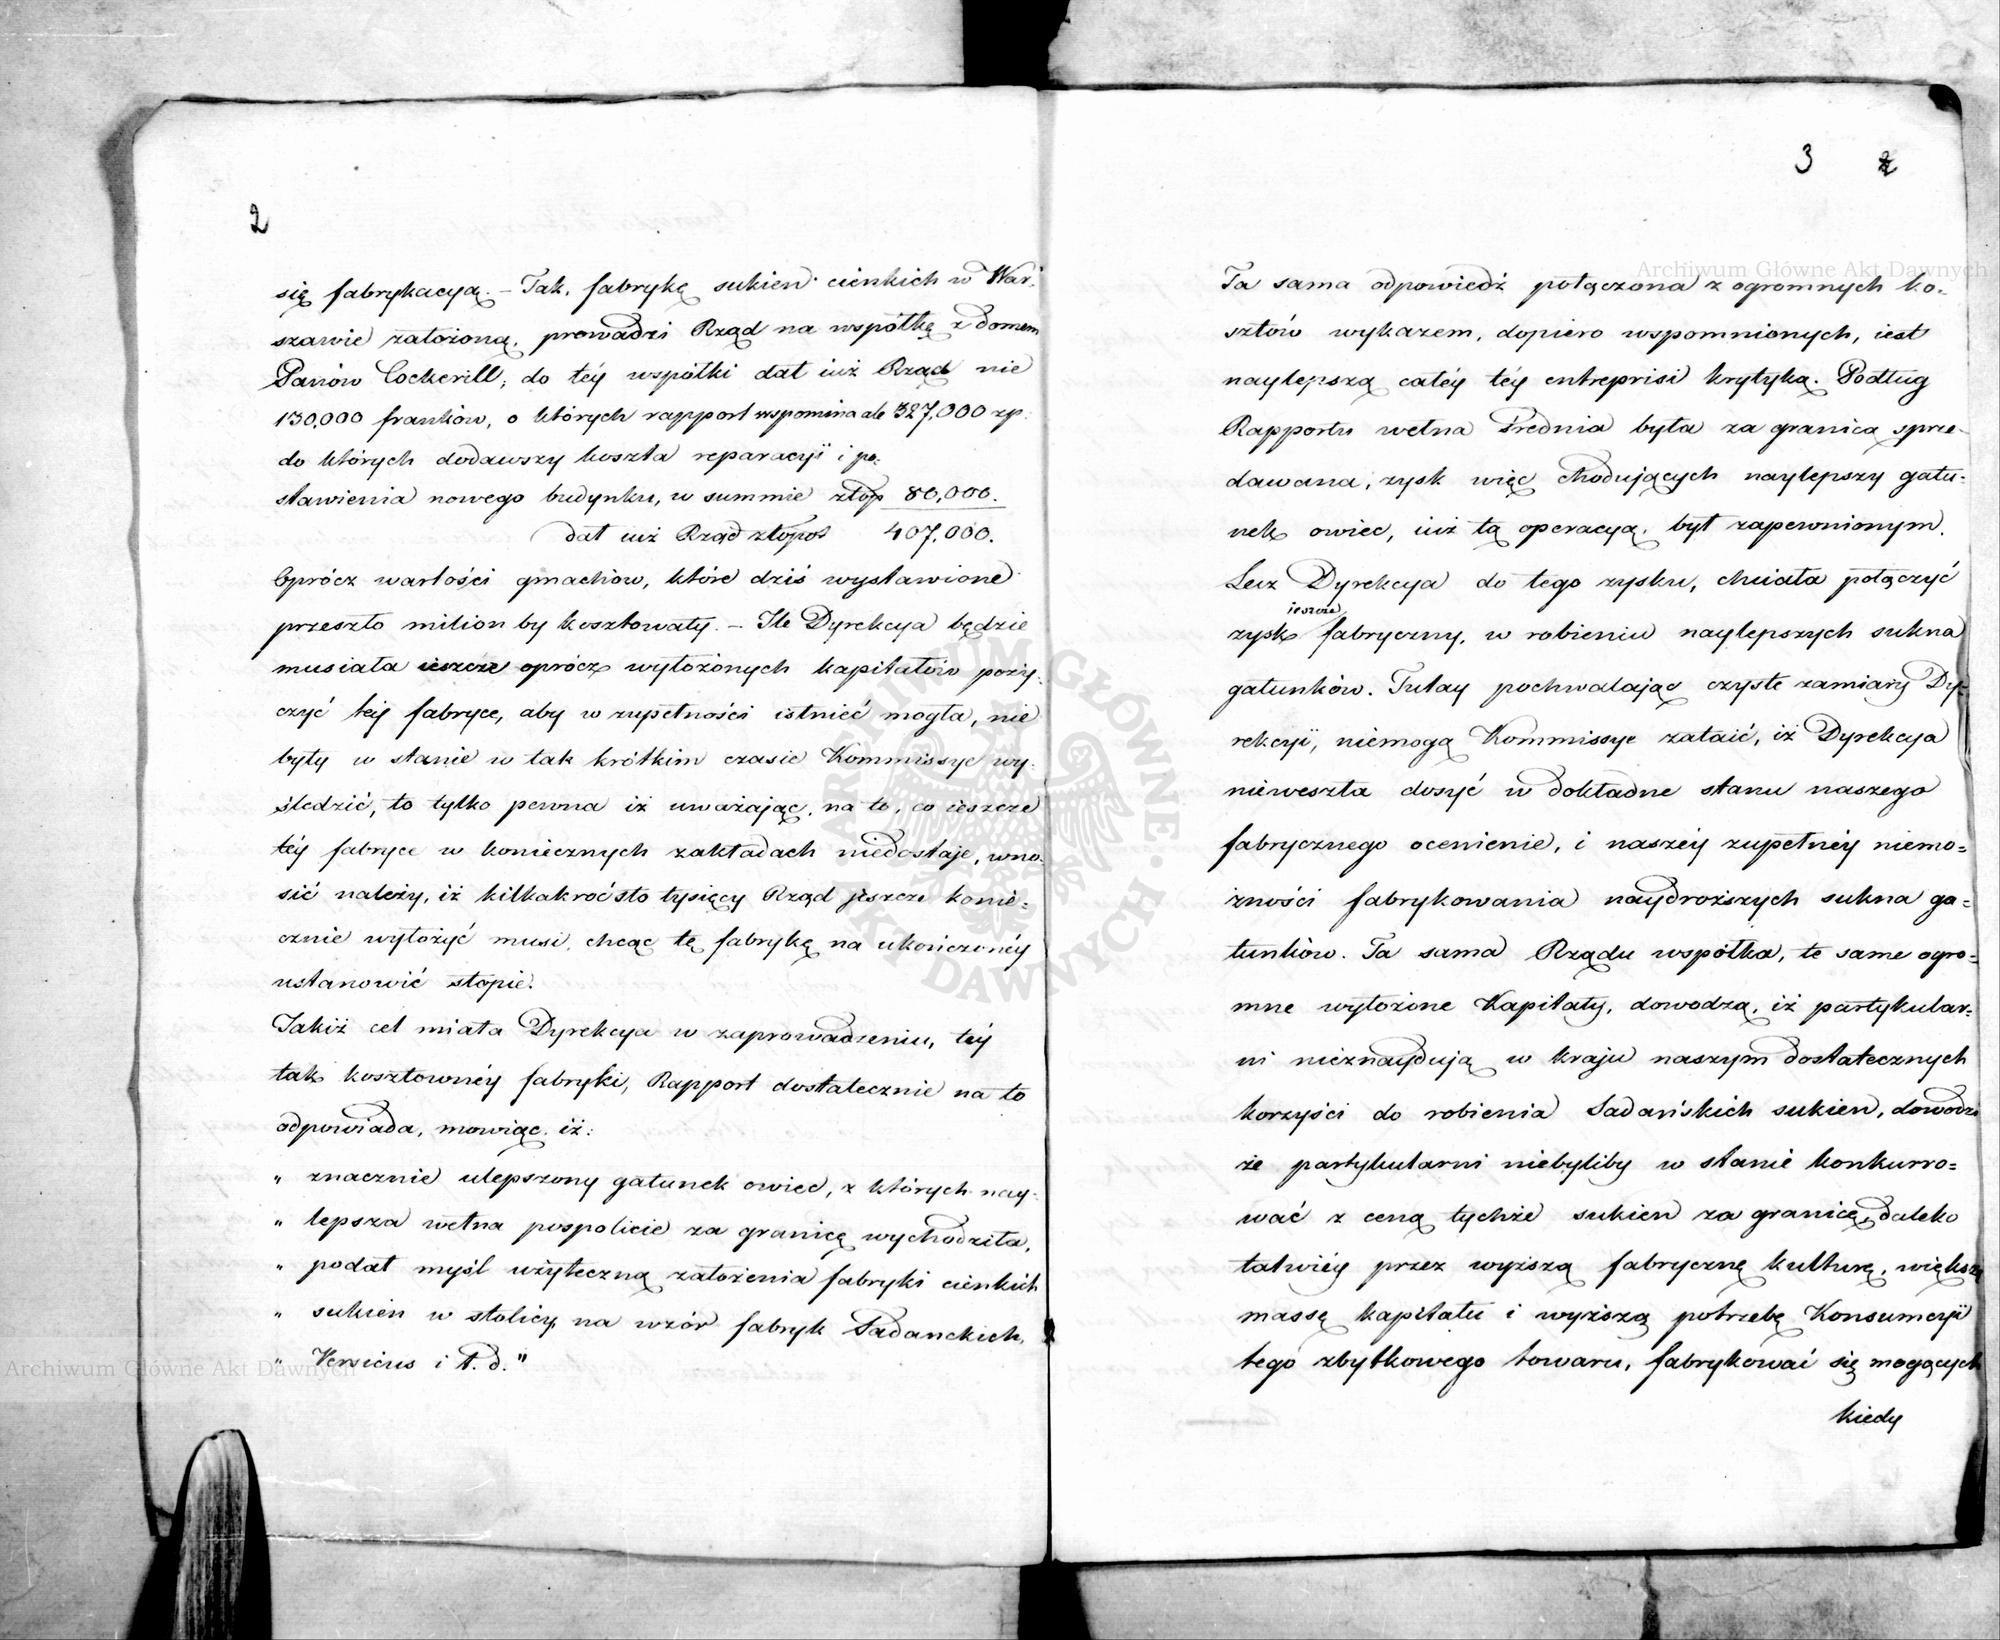 2
się fabrykacyą. – Tak, fabrykę sukien cienkich w War-
szawie założoną, prowadzi Rząd na współkę z domem
Panów Cockerill; do téy współki dał iuż Rząd nie
130,000 franków, o których rapport wspomina ale 327,000 zp.
do których dodawszy koszta reparacyi i po-
stawienia nowego budynku, w summie złop 80,000.
dał iuż Rząd złopol 407,000.
Oprócz wartości gmachów, które dziś wystawione
przeszło milion by kosztowały. – Ile Dyrekcya będzie
musiała ieszcze oprócz wyłożonych kapitałów poży-
czyć téy fabryce, aby w zupełności istnieć mogła, nie
były w stanie w tak krótkim czasie Kommissye wy-
śledzić, to tylko pewna iż uważając, na to, co ieszcze
téy fabryce w koniecznych zakładach niedostaje, wno-
sić należy, iż kilkakroć sto tysięcy Rząd jeszcze konie-
cznie wyłożyć musi, chcąc tę fabrykę na ukończonéy
ustanowić stopie.
Jakiż cel miała Dyrekcya w zaprowadzeniu, téy
tak kosztownéy fabryki, Rapport dostatecznie na to
odpowiada, mowiąc iż:
„ znacznie ulepszony gatunek owiec, z których nay-
„ lepsza wełna pospolicie za granicę wychodziła,
„ podał myśl użyteczną założenia fabryki cienkich
„ sukien w stolicy, na wzór fabryk Sadanckich,
„ Versieus i t. d. "
3 2
Ta sama odpowiedź połączona z ogromnych ko-
sztów wykazem, dopiero wspomnionych, iest
naylepszą całéy téy entreprisi krytyką. Podług
Rapportu wełna średnia była za granicą sprze-
dawana, zysk więc chodujących naylepszy gatu-
nek owiec, iuż tą operacyą, był zapewnionym.
Lecz Dyrekcya do tego zysku, chciała połączyć
ieszcze
zysk fabryczny, w robieniu naylepszych sukna
gatunków. Tutay pochwalając czyste zamiary Dy-
rekcyi, niemogą Kommissye zataić, iż Dyrekcya
nieweszła dosyć w dokładne stanu naszego
fabrycznego ocenienie, i naszéy zupełnéy niemo-
żności fabrykowania naydroższych sukna ga-
tunków. Ta sama Rządu współka, te same ogro-
mne wyłożone Kapitały, dowodzą, iż partykular-
ni nieznaydują w kraju naszym dostatecznych
korzyści do robienia Sadańskich sukien, dowodzi
że partykularni niebyliby w stanie konkurro-
wać z ceną tychże sukien za granicę, daleko
łatwiéy przez wyższą fabryczną kulturę, większą
massę kapitału i wyższą potrzebę Konsumcyi
tego zbytkowego towaru, fabrykować się mogących
kiedy
Archiwum Główne Akt Dawnych
Archiwum Główne Akt Dawnych
ARCHIWUM GŁÓWNE AKT DAWNYCH